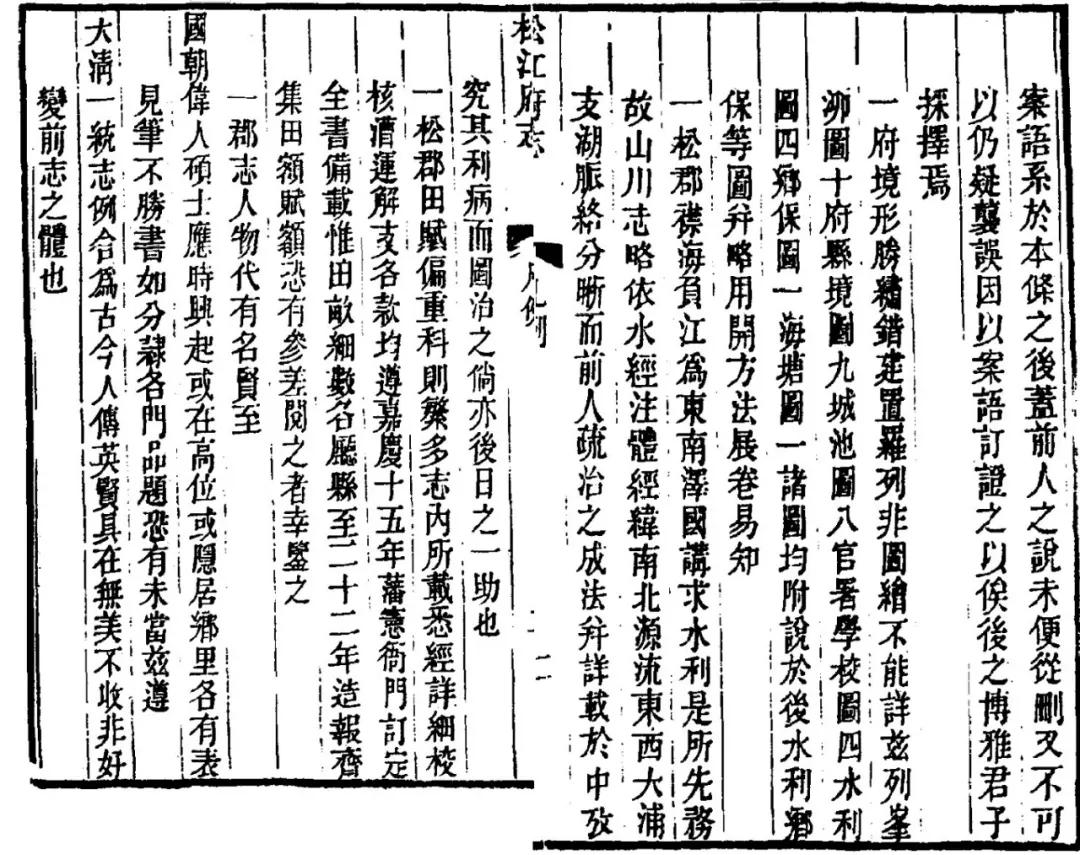 案語系於本條之後蓋前人之說未便從刪又不可
以仍疑襲誤因以案語訂證之以俟後之博雅君子
採擇焉
一府境形勝繡錯建置羅列非圖繪不能詳玆列峯
泖圖十府縣境圖九城池圖八官署學校圖四水利
圖四鄉保圖一海塘圖一諸圖均附說於後水利鄉
保等圖弁略用開方法展卷易知
一松郡襟海負江爲東南澤國講求水利是所先務
故山川志略依水經注體經緯南北源流東西大浦
支湖脈絡分晰而前人疏治之成法弁詳載於中攷
松江府志
凡例
二
究其利病而圖治之倘亦後日之一助也
一松郡田賦偏重科則繁多志內所載悉經詳細校
核漕運解支各款均遵嘉慶十五年藩憲衙門訂定
全書備載惟田畝細數名廳縣至二十二年造報齊
集田額賦額恐有參差閱之者幸鑒之
一郡志人物代有名賢至
國朝偉人碩士應時興起或在高位或隱居鄉里各有表
見筆不勝書如分隸各門品題恐有未當玆遵
大淸一統志例合爲古今人傳英賢具在無美不收非好
變前志之體也